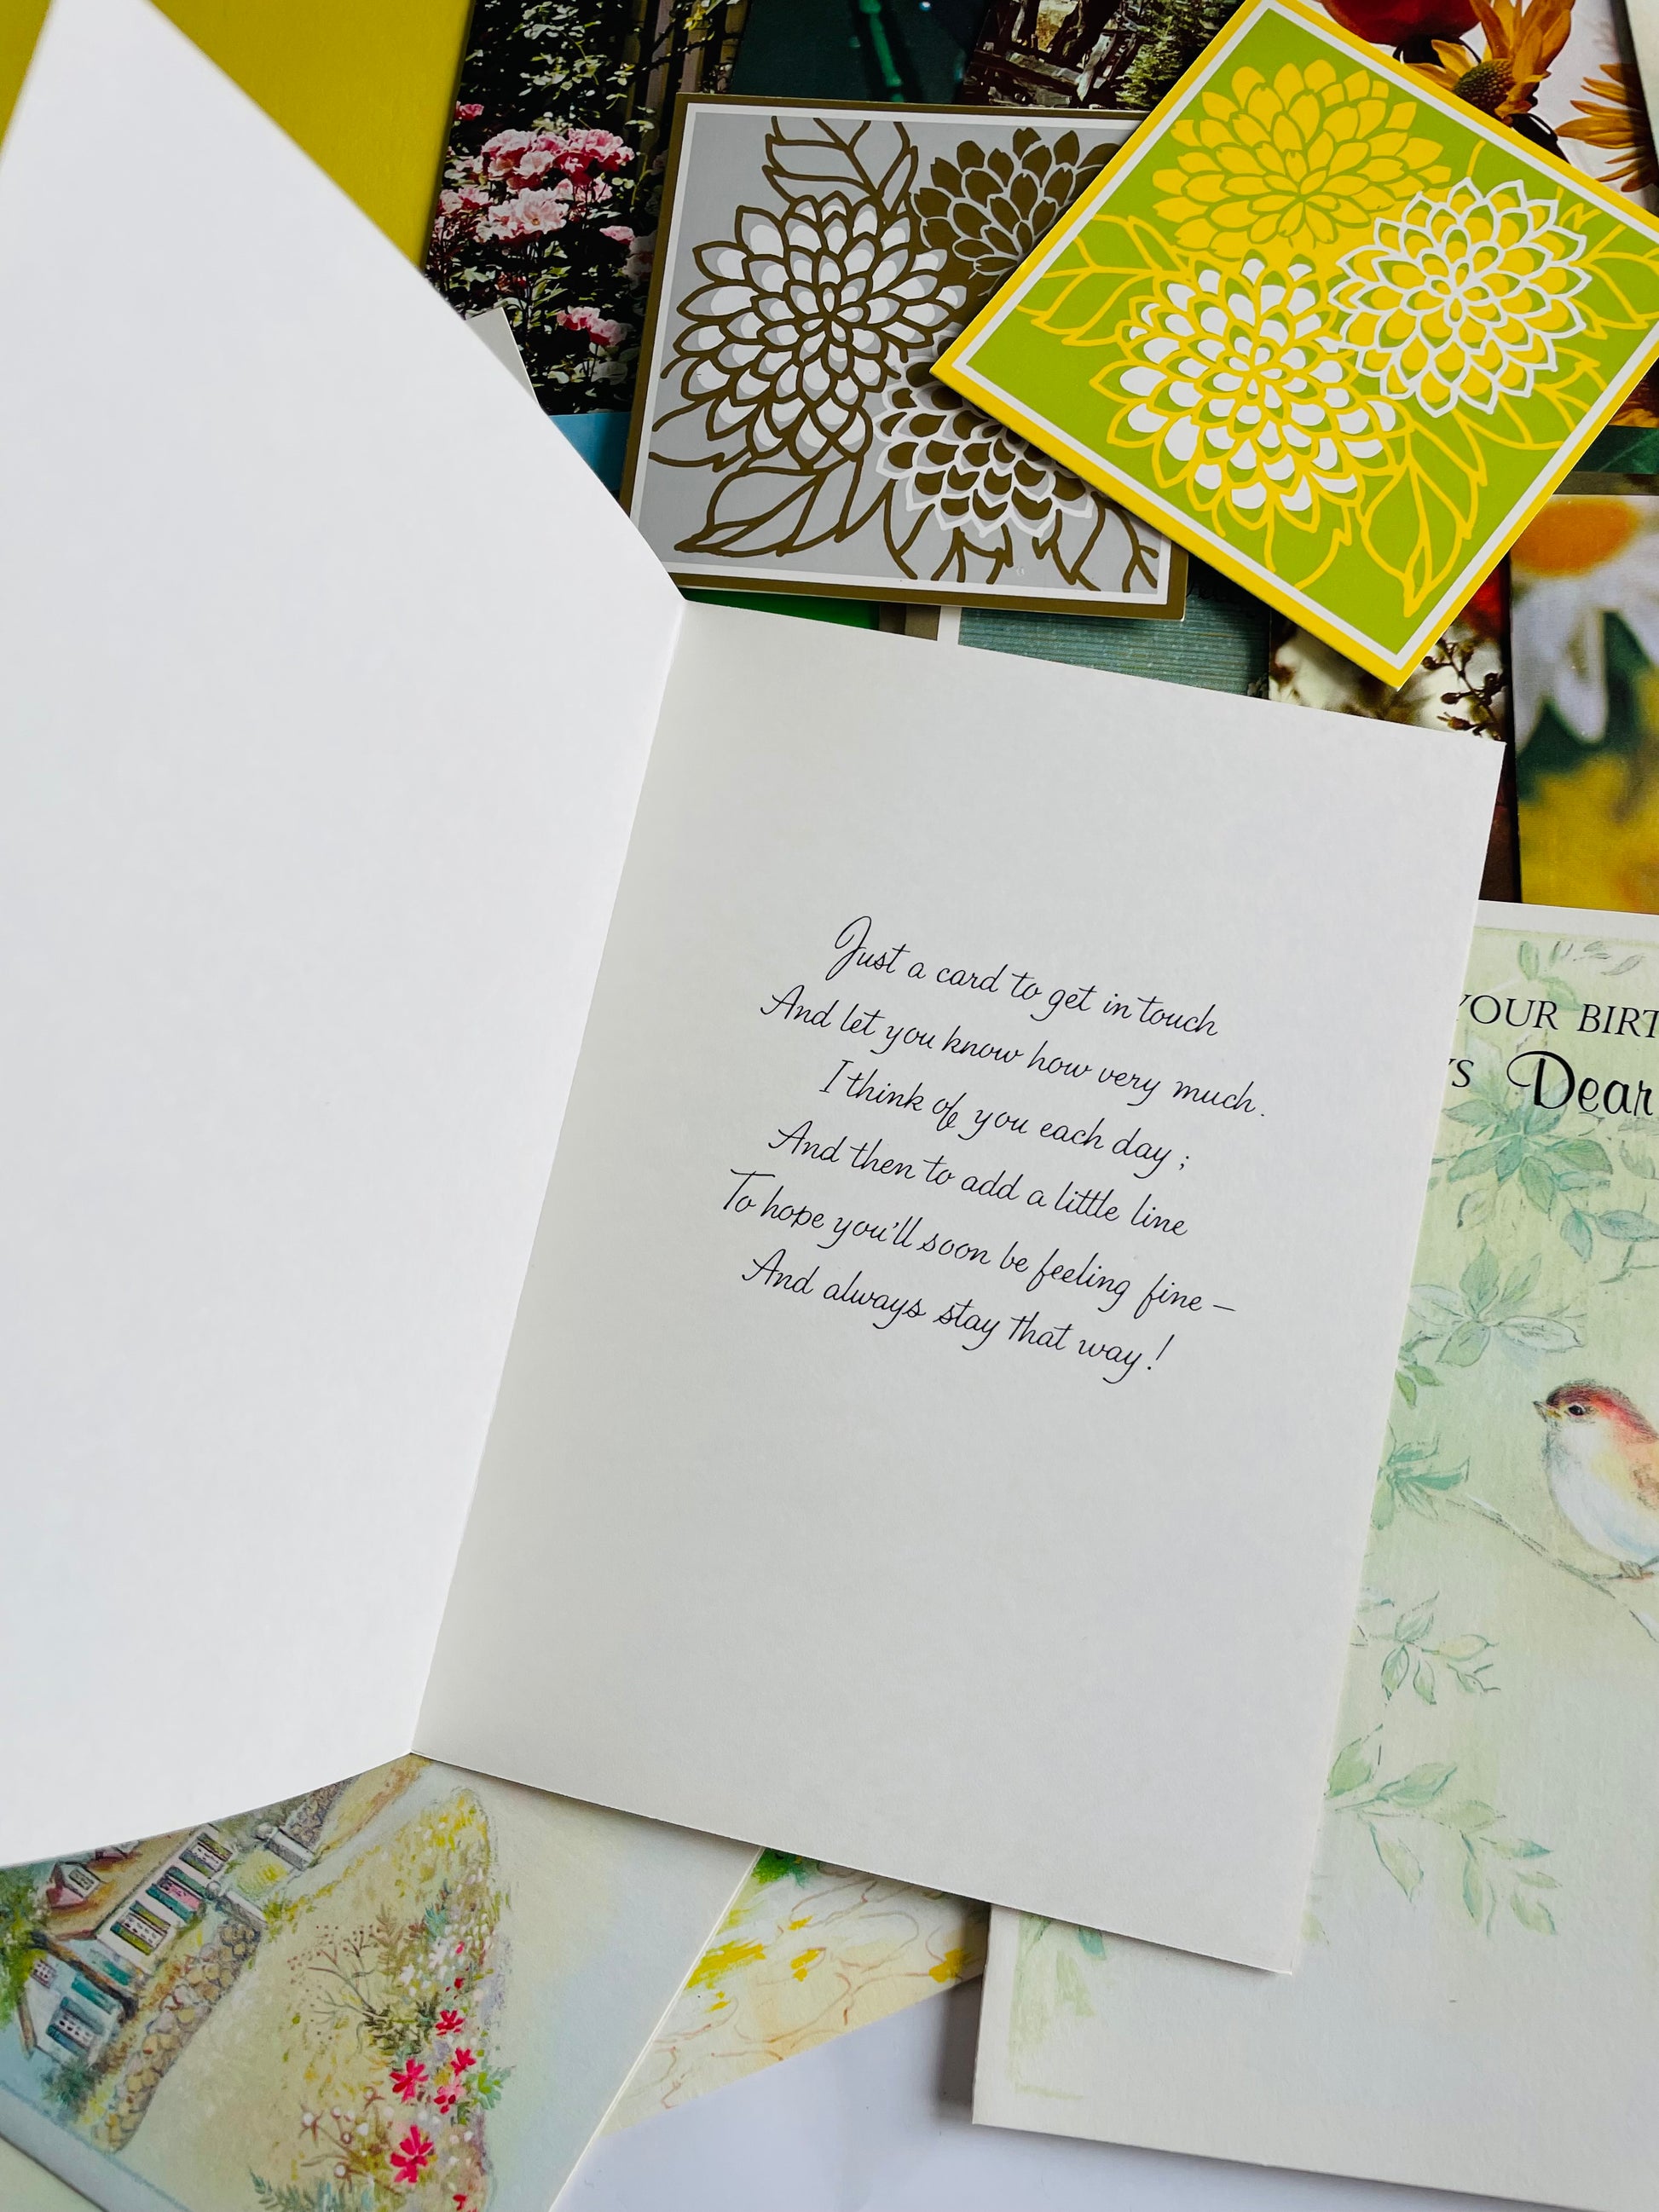 Just a card to get in touch
And let you know how very much.
I think of you each day;
And then to add a little line
To hope you'll soon be feeling fine —
And always stay that way!
YOUR BIRT
Dear